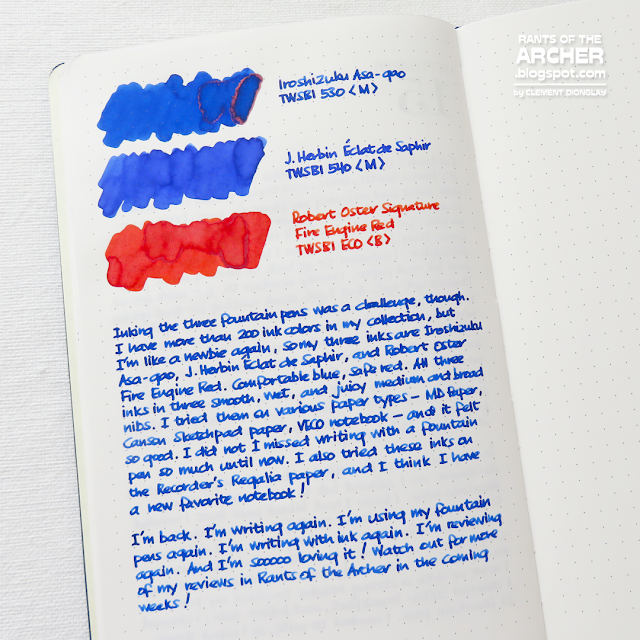 RANTS OF THE
ARCHER
.blogspot.com
by CLEMENT DIONGLAY
Iroshizuku Asa-gao
TWSBI 530 <M>
J. Herbin Éclat de Saphir
TWSBI 540 <M>
Robert Oster Signature
Fire Engine Red
TWSBI ECO <B>
Inking the three fountain pens was a challenge, though.
I have more than 200 ink colors in my collection, but
I'm like a newbie again, so my three inks are Iroshizuku
Asa-gao, J. Herbin Éclat de Saphir, and Robert Oster
Fire Engine Red. Comfortable blue, safe red. All three
inks in three smooth, wet, and juicy medium and broad
nibs. I tried them on various paper types – MD Paper,
Canson Sketchpad paper, VECO notebook – and it felt
so good. I did not I missed writing with a fountain
pen so much until now. I also tried these inks on
the Recorder's Regalia paper, and I think I have
a new favorite notebook!
I'm back. I'm writing again. I'm using my fountain
pens again. I'm writing with ink again. I'm reviewing
again. And I'm sooooo loving it! Watch out for more
of my reviews in Rants of the Archer in the coming
weeks!